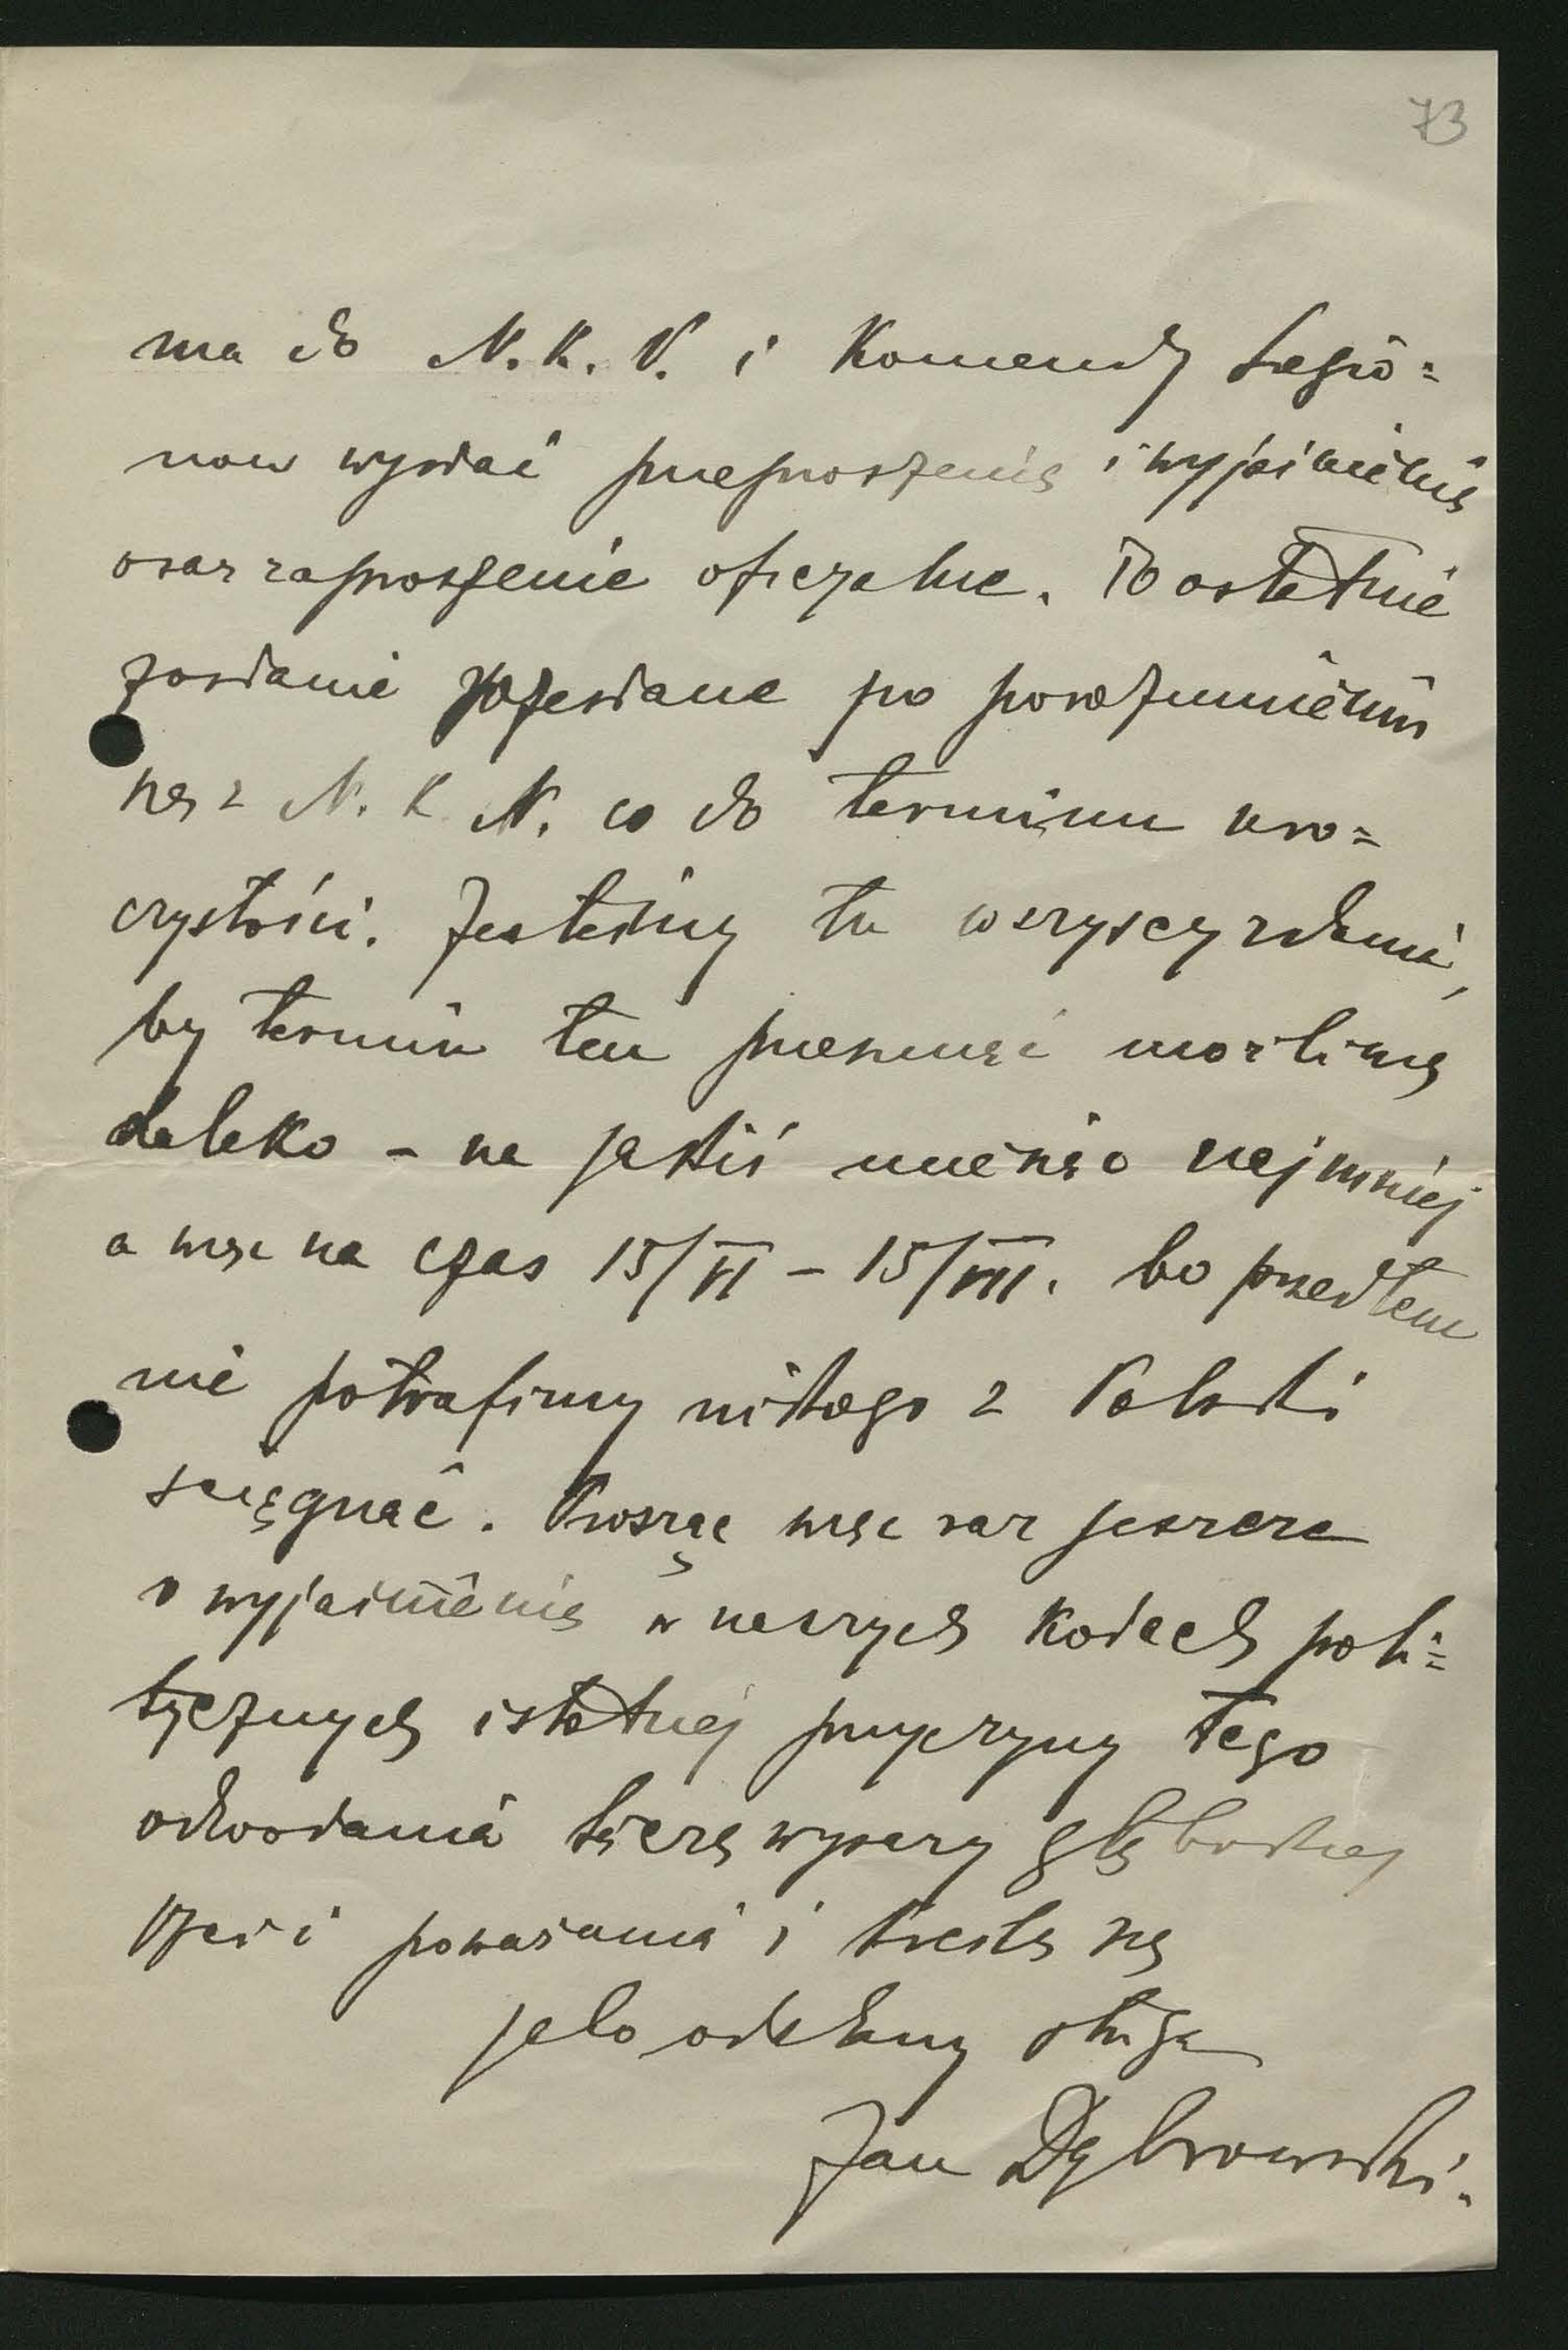 73
ma do N. K. N. i Komendy Legio=
nów wysłać przeproszenie i wyjaśnienie
oraz zaproszenie oficyalne. To ostatnie
zostanie rozesłane po porozumieniu
się z N. K. N. co do terminu uro=
czystości. Jesteśmy tu wszyscy zdania,
by termin ten przesunąć możliwie
daleko – na jakiś miesiąc najmniej
a więc na czas 15/VI – 15/VII. bo przedtem
nie potrafimy nikogo z Polski
ściągnąć. Prosząc więc raz jeszcze
o wyjaśnienie w naszych kołach poli=
tycznych istotnej przyczyny tego
odwołania łączę wyrazy głębokiej
czci i poważania i kreślę się
jako oddany sługa
Jan Dąbrowski.